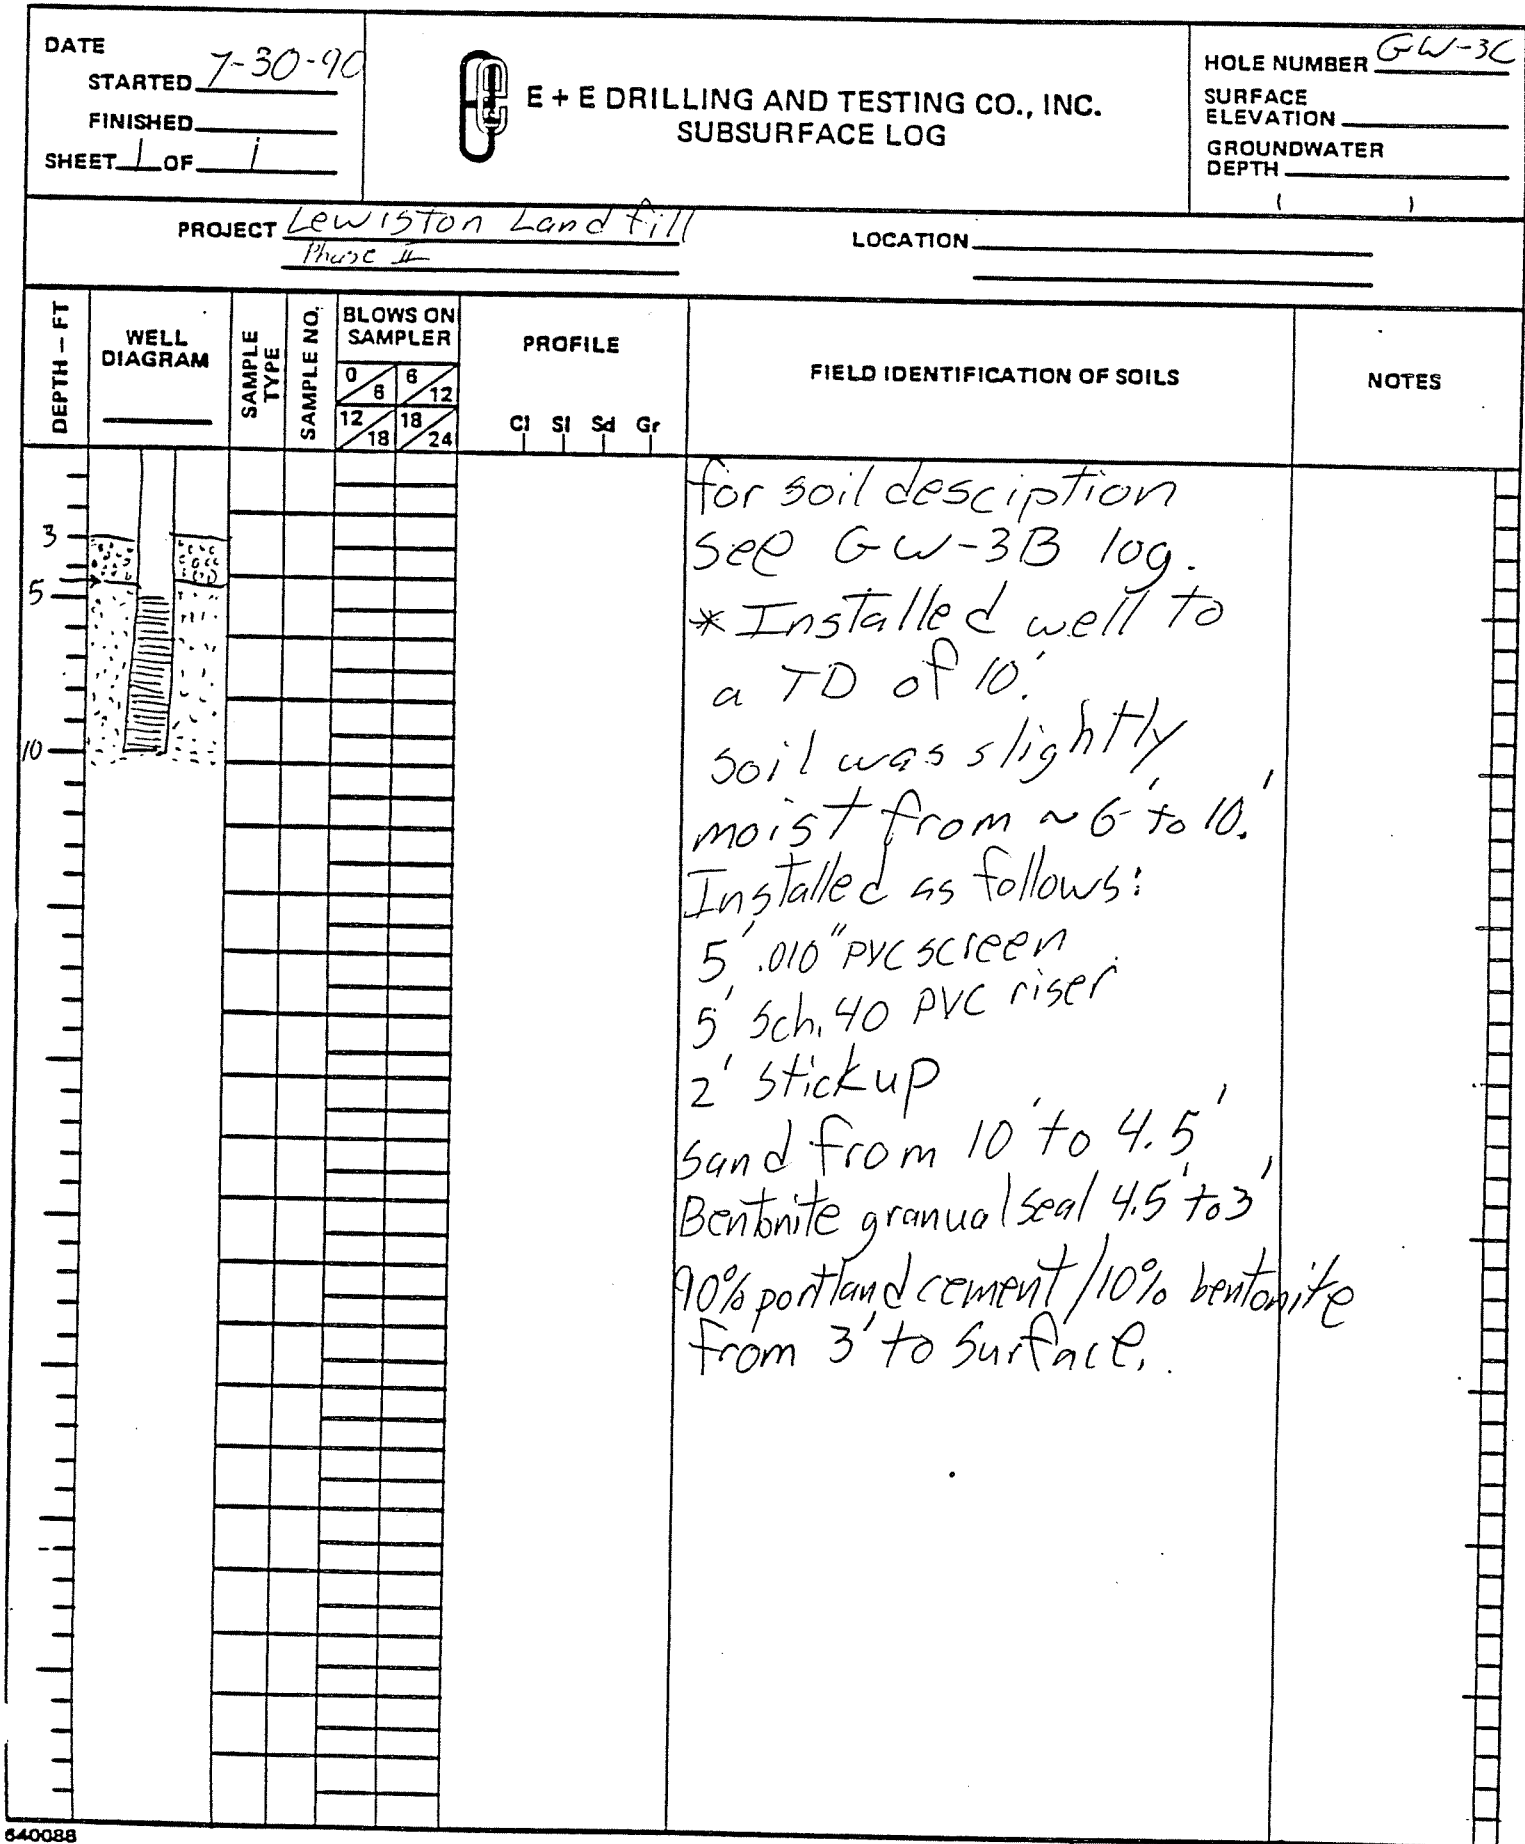 DATE
STARTED 7-30-90
FINISHED
SHEET 1 OF 1
E + E DRILLING AND TESTING CO., INC.
SUBSURFACE LOG
HOLE NUMBER GW-3C
SURFACE
ELEVATION
GROUNDWATER
DEPTH
( )
PROJECT Lewiston Landfill
Phase II
LOCATION
DEPTH – FT
WELL
DIAGRAM
SAMPLE
TYPE
SAMPLE NO.
BLOWS ON
SAMPLER
0/6 6/12
12/18 18/24
PROFILE
Cl Sl Sd Gr
FIELD IDENTIFICATION OF SOILS
NOTES
3
5
10
for soil desciption
see GW-3B log.
* Installed well to
a TD of 10'.
soil was slightly
moist from ~ 6' to 10.'
Installed as follows:
5' .010" PVC screen
5' Sch. 40 PVC riser
2' stickup
Sand from 10' to 4.5'
Bentonite granual seal 4.5' to 3'
90% portland cement/10% bentonite
from 3' to surface.
640088